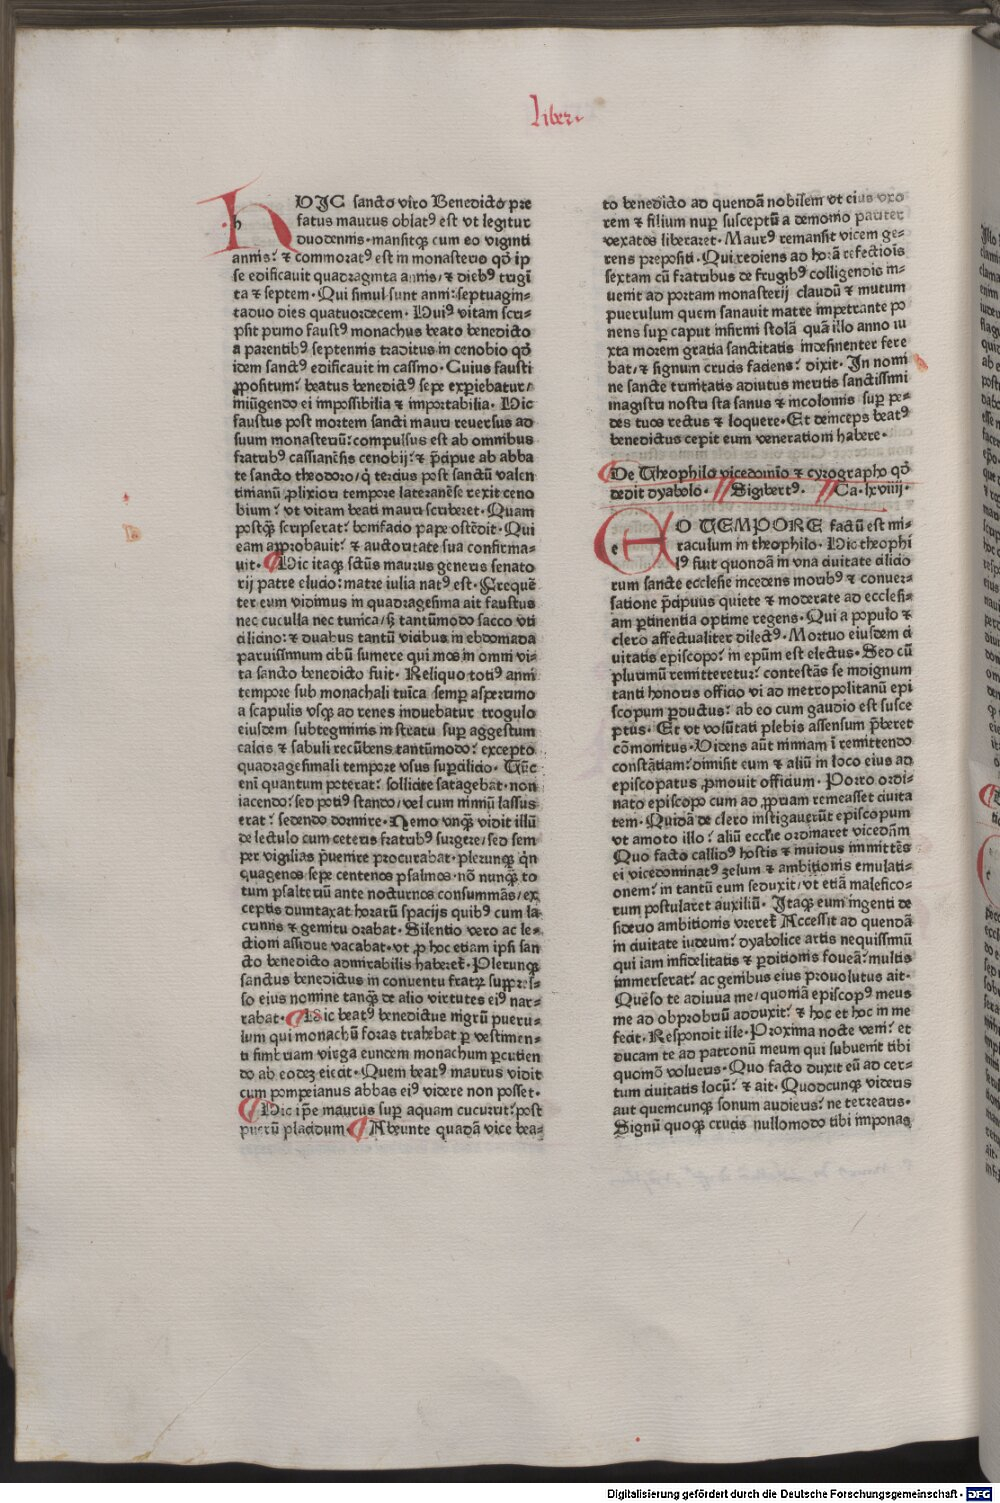 liber
HVIC sancto viro Benedicto pre
fatus maurus oblatꝰ est vt legitur
duodennis·mansitqꝫ cum eo viginti
annis: ⁊ commoratꝰ est in monasterio qd̄ ip
se edificauit quadraginta annis/⁊ diebꝰ trigī
ta ⁊ septem·Qui simul sunt anni:septuagin⸗
taduo dies quatuordecem· Huiꝰ vitam scri⸗
psit primo faustꝰ monachus beato benedicto
a parentibꝰ septennis traditus in cenobio qd̄
idem sanctꝰ edificauit in cassino·Cuius fausti
ꝓpositum: beatus benedictꝰ sepe exꝑiebatur/
iniūgendo ei impossibilia ⁊ importabilia· Hic
faustus post mortem sancti mauri reuersus ad
suum monasteriū:compulsus est ab omnibus
fratribꝰ cassianēsis cenobij:⁊ p̄cipue ab abba
te sancto theodoro/q̇ tercius post sanctū valen
tinianū ꝓlixiori tempore lateranēse rexit ceno
bium: vt vitam beati mauri scriberet·Quam
postqꝫ scripserat: bonifacio pape ostēdit·Qui
eam approbauit: ⁊ auctoritate sua confirma⸗
uit·Hic itaqꝫ sc̄tus maurus generis senato
rij patre elucio:matre iulia natꝰ est·Frequē
ter eum vidimus in quadragesima ait faustus
nec cuculla nec tunica/sꝫ tantūmodo sacco vti
cilicino:⁊ duabus tantū vicibus in ebdomada
paruissimum cibū sumere qui mos in omni vi⸗
ta sancto benedicto fuit· Reliquo totiꝰ anni
tempore sub monachali tuīca semꝑ asperrimo
a scapulis vsqꝫ ad renes induebatur trogulo
eiusdem subtegminis in stratu suꝑ aggestum
calcis ⁊ sabuli recūbens tantūmodo: excepto
quadragesimali tempore vsus suꝑcilicio· Tūc
eni quantum poterat: sollicite satagebat·non
iacendo:sed potiꝰ stando/vel cum nimiū lassus
erat: sedendo dormire·Nemo vnqꝫ vidit illū
de lectulo cum ceteris fratribꝰ surgere/sed sem
per vigilias p̄uenire procurabat·plerunqꝫ qn̄
quagenos/sepe centenos psalmos·nō nunqꝫ to
tum psalteriū ante nocturnos consummās/ex
ceptis dumtaxat horarū spacijs quibꝰ cum la
crimis ⁊ gemitu orabat·Silentio vero ac le⸗
ctioni assidue vacabat·vt ꝓ hoc etiam ipsi san
cto benedicto admirabilis haberet̄·Plerunqꝫ
sanctus benedictus in conuentu fratrꝫ suppres⸗
so eius nomine tanqꝫ de alio virtutes eiꝰ nar⸗
rabat·Hic beatꝰ benedictus nigrū pueru⸗
lum qui monachū foras trahebat ꝑ vestimen⸗
ti fimbriam virga eundem monachum ꝑcutien
do ab eodeꝫ eiecit·Quem beatꝰ maurus vidit
cum pompeianus abbas eiꝰ videre non posset·
Hic ip̄e maurus suꝑ aquam cucurrit:post
puerū placidum·Abeunte quadā vice bea⸗
to benedicto ad quendā nobilem vt eius vxo
rem ⁊ filium nuꝑ susceptū a demonio pariter
vexatos liberaret·Maurꝰ remansit vicem ge⸗
rens prepositi·Qui rediens ad horā refectiois
sextam cū fratribus de frugibꝰ colligendis in⸗
uenit ad portam monasterij claudū ⁊ mutum
puerulum quem sanauit matre impetrante po
nens suꝑ caput infirmi stolā quā illo anno iu
xta morem gratia sanctitatis indesinenter fere
bat/⁊ signum crucis faciens: dixit·In nomi
ne sancte trinitatis adiutus meritis sanctissimi
magistri nostri sta sanus ⁊ incolomis suꝑ pe⸗
des tuos rectus ⁊ loquere·Et deinceps beatꝰ
benedictus cepit eum venerationi habere·
De Theophilo vicedomīo ⁊ cyrographo qd̄
dedit dyabolo· Sigibertꝰ. Ca·lxviiij·
EO TEMPORE factū est mi⸗
raculum in theophilo·Hic theophi
lꝰ fuit quondā in vna ciuitate cilicio
rum sancte ecclesie incedens moribꝰ ⁊ conuer⸗
satione p̄cipuus quiete ⁊ moderate ad ecclesi⸗
am ꝑtinentia optime regens·Qui a populo ⁊
clero affectualiter dilectꝰ·Mortuo eiusdem ci
uitatis episcopo: in epūm est electus·Sed cū
plurimū remitteretur: contestās se indignum
tanti honoris officio vi ad metropolitanū epi
scopum ꝑductus: ab eo cum gaudio est susce
ptus· Et vt volūtati plebis assensum p̄beret
cōmonitus·Videns aūt nimiam ī remittendo
constātiam:dimisit eum ⁊ aliū in loco eius ad
episcopatus ꝓmouit officium· Porro ordi⸗
nato episcopo cum ad ꝓpriam remeasset ciuita
tem·Quidā de clero instigauerūt episcopum
vt amoto illo: aliū eccl̄ie ordinaret vicedn̄m
Quo facto callidꝰ hostis ⁊ inuidus immittēs
ei vicedominatꝰ zelum ⁊ ambitionis emulati⸗
onem: in tantū eum seduxit/vt etiā malefico⸗
rum postularet auxiliū· Itaqꝫ eum ingenti de
siderio ambitionis vreret̄ Accessit ad quendā
in ciuitate iudeum: dyabolice artis nequissimū
qui iam infidelitatis ⁊ ꝑditionis foueā:multis
immerserat: ac genibus eius prouolutus ait·
Quēso te adiuua me/quomā episcopꝰ meus
me ad obprobriū adduxit: ⁊ hoc et hoc in me
fecit·Respondit ille·Proxima nocte veni: et
ducam te ad patronū meum qui subuenit tibi
quomō volueris·Quo facto duxit eū ad cer⸗
tum ciuitatis locū: ⁊ ait·Quodcunqꝫ videris
aut quemcunqꝫ sonum audieris: ne terrearis·
Signū quoqꝫ crucis nullomodo tibi imponas
Digitalisierung gefördert durch die Deutsche Forschungsgemeinschaft - DFG